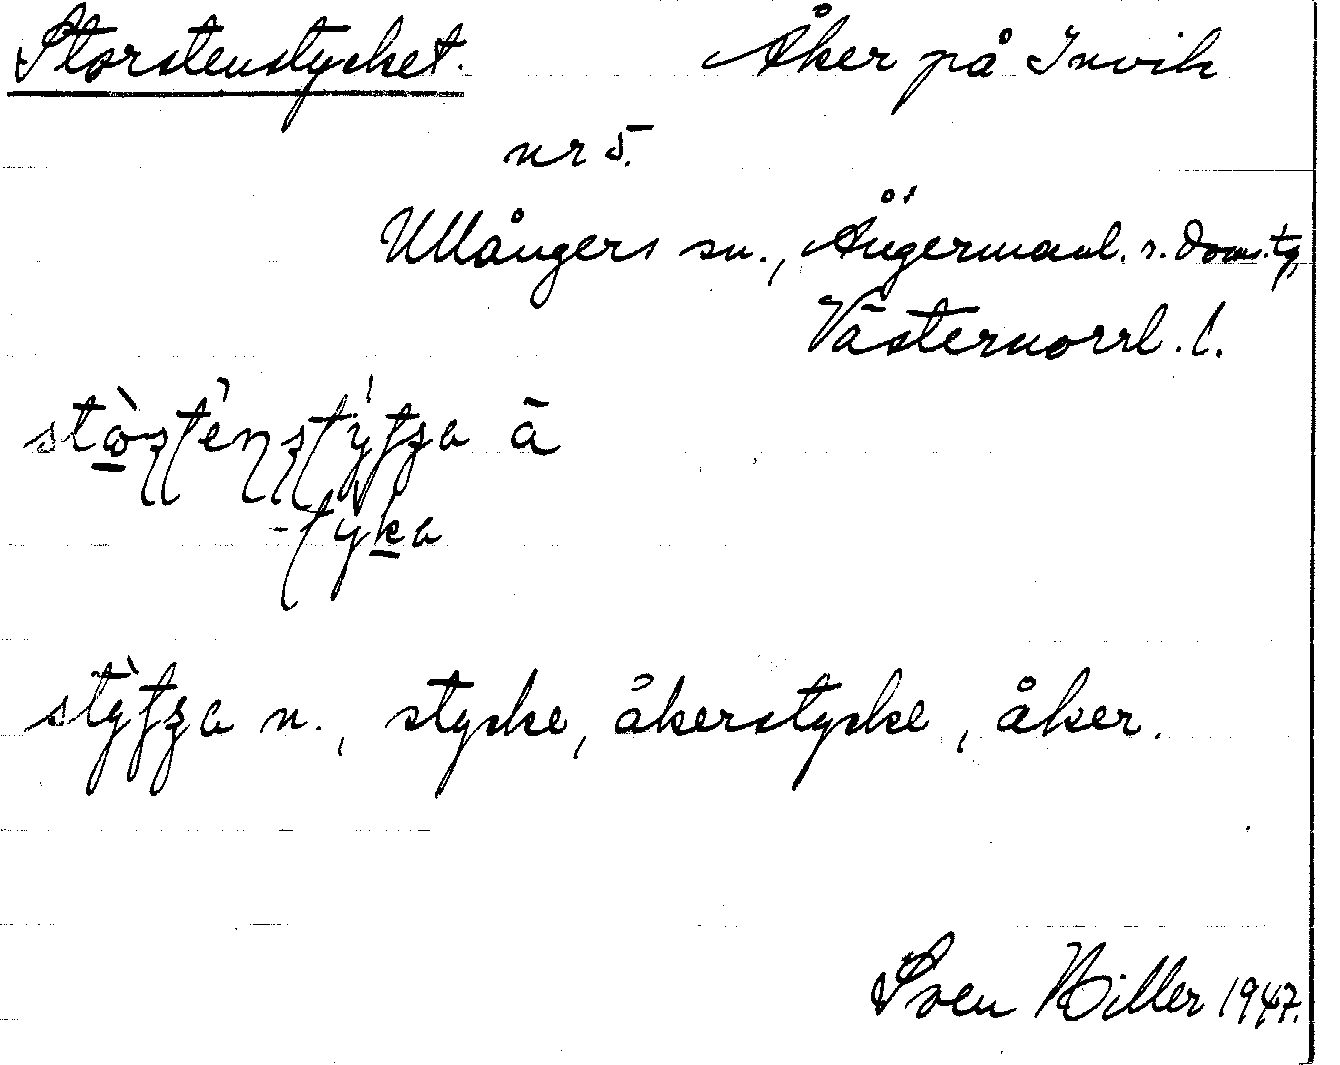 Storstenstycket. Åker på Invik
nr 5.
Ullångers sn., Ångermanl. s. doms. tg
Västernorrl. l.
ā
-tyka
n., stycke, åkerstycke, åker.
Sven Hiller 1947.